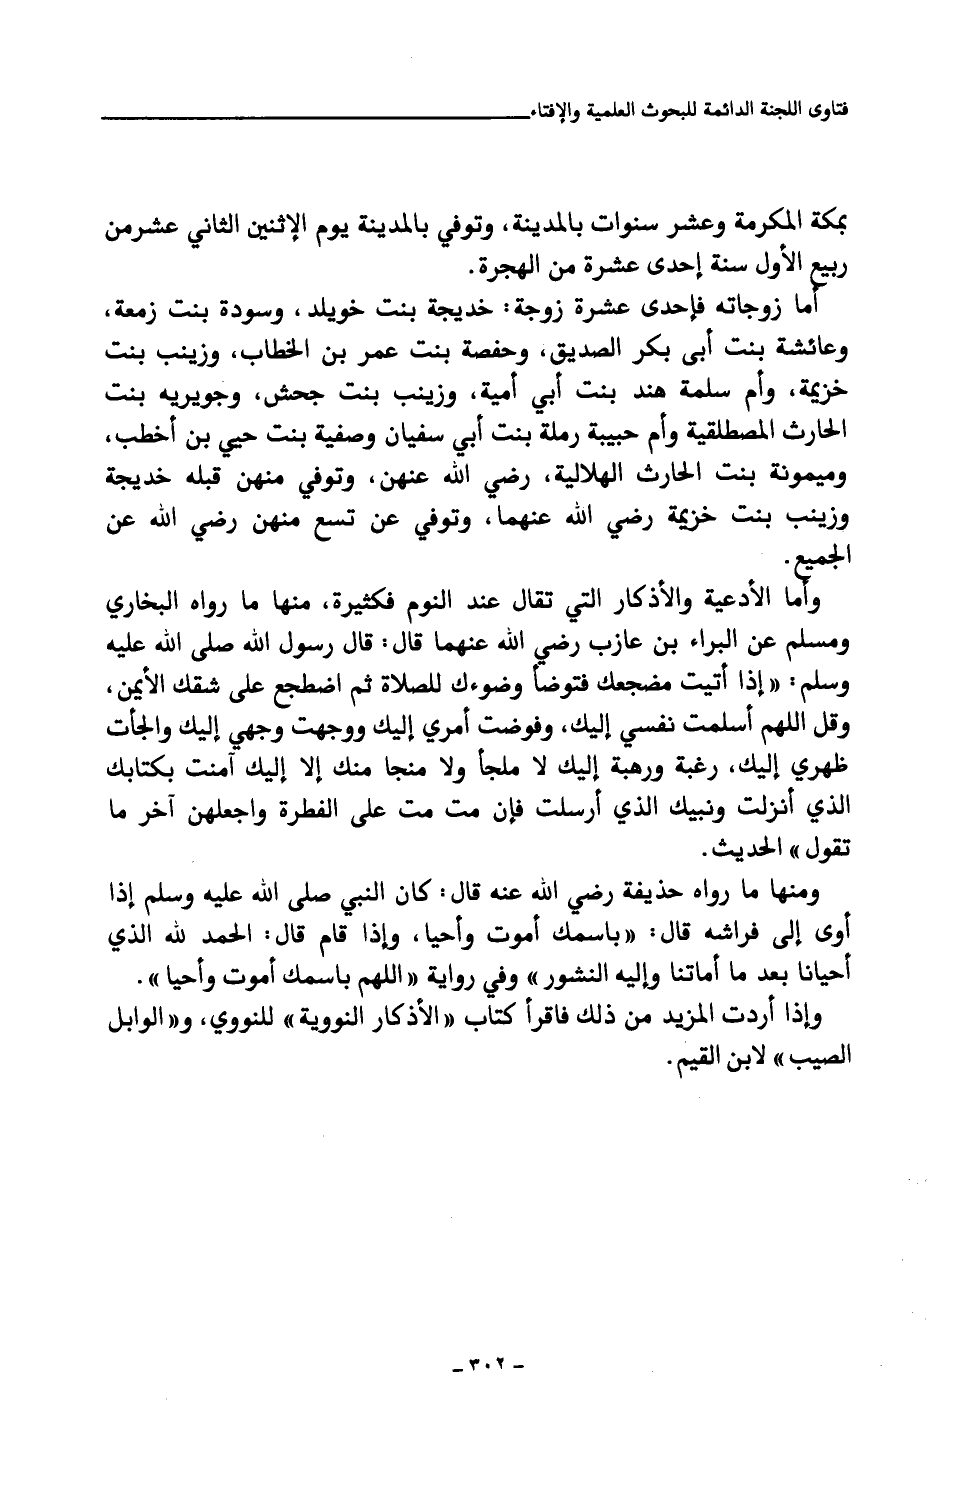 فتاوى اللجنة الدائمة للبحوث العلمية والإفتاء
بمكة المكرمة وعشر سنوات بالمدينة، وتوفي بالمدينة يوم الإثنين الثاني عشرمن
ربيع الأول سنة إحدى عشرة من الهجرة.
أما زوجاته فإحدى عشرة زوجة: خديجة بنت خويلد، وسودة بنت زمعة،
وعائشة بنت أبى بكر الصديق، وحفصة بنت عمر بن الخطاب، وزينب بنت
خزيمة، وأم سلمة هند بنت أبي أمية، وزينب بنت جحش، وجويريه بنت
الحارث المصطلقية وأم حبيبة رملة بنت أبي سفيان وصفية بنت حيي بن أخطب،
وميمونة بنت الحارث الهلالية، رضي الله عنهن، وتوفي منهن قبله خديجة
وزينب بنت خزيمة رضي الله عنهما، وتوفي عن تسع منهن رضي الله عن
الجميع.
وأما الأدعية والأذكار التي تقال عند النوم فكثيرة، منها ما رواه البخاري
ومسلم عن البراء بن عازب رضي الله عنهما قال: قال رسول الله صلى الله عليه
وسلم: «إذا أتيت مضجعك فتوضأ وضوءك للصلاة ثم اضطجع على شقك الأيمن،
وقل اللهم أسلمت نفسي إليك، وفوضت أمري إليك ووجهت وجهي إليك والجأت
ظهري إليك، رغبة ورهبة إليك لا ملجأ ولا منجا منك إلا إليك آمنت بكتابك
الذي أنزلت ونبيك الذي أرسلت فإن مت مت على الفطرة واجعلهن آخر ما
تقول» الحديث.
ومنها ما رواه حذيفة رضي الله عنه قال: كان النبي صلى الله عليه وسلم إذا
أوى إلى فراشه قال: «باسمك أموت وأحيا، وإذا قام قال: الحمد لله الذي
أحيانا بعد ما أماتنا وإليه النشور» وفي رواية «اللهم باسمك أموت وأحيا».
وإذا أردت المزيد من ذلك فاقرأ كتاب «الأذكار النووية» للنووي، و«الوابل
الصيب» لابن القيم.
- ٣٠٢ -